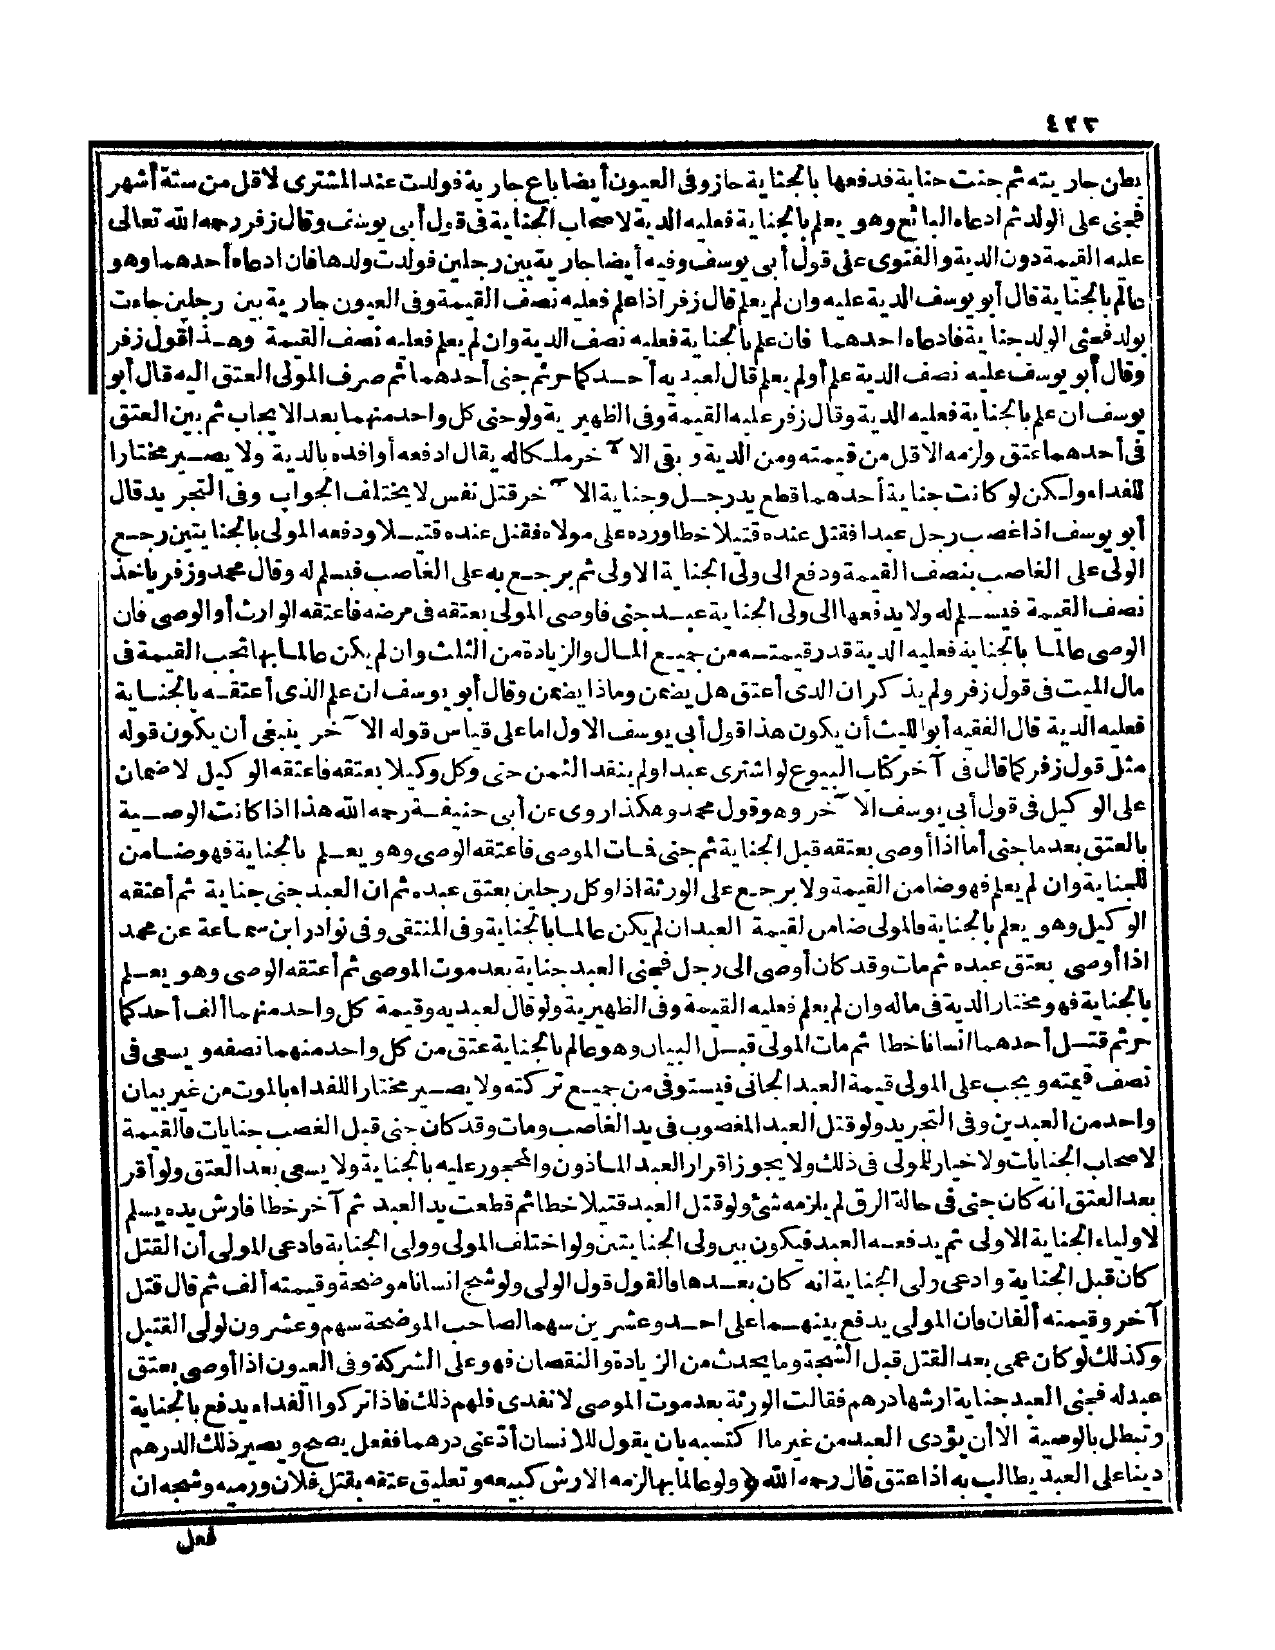 ٤٢٣
بطن جاريته ثم جنت جناية فدفعها بالجناية جاز وفى العيون أيضا باع جارية فولدت عند المشترى لاقل من ستة أشهر
فجنى على الولد ثم ادعاه البائع وهو يعلم بالجناية فعليه الدية لاصحاب الجناية فى قول أبى يوسف وقال زفر رحمه الله تعالى
عليه القيمة دون الدية والفتوى على قول أبى يوسف وفيه أيضا جارية بين رجلين فولدت ولدها فان ادعاه أحدهما وهو
عالم بالجناية قال أبو يوسف الدية عليه وان لم يعلم قال زفر اذا علم فعليه نصف القيمة وفى العيون جارية بين رجلين جاءت
بولد فجنى الولد جناية فادعاه احدهما فان علم بالجناية فعليه نصف الدية وان لم يعلم فعليه نصف القيمة وهذا قول زفر
وقال أبو يوسف عليه نصف الدية علم أو لم يعلم قال لعبديه أحدكما حر ثم جنى أحدهما ثم صرف المولى العتق اليه قال أبو
يوسف ان علم بالجناية فعليه الدية وقال زفر عليه القيمة وفى الظهيرية ولو جنى كل واحد منهما بعد الايجاب ثم بين العتق
فى أحدهما عتق ولزمه الاقل من قيمته ومن الدية وبقى الآخر ملكا له يقال ادفعه أو افده بالدية ولا يصير مختارا
للفداء ولكن لو كانت جناية أحدهما قطع يد رجل وجناية الآخر قتل نفس لا يختلف الجواب وفى التجريد قال
أبو يوسف اذا غصب رجل عبدا فقتل عنده قتيلا خطا ورده على مولاه فقتل عنده قتيلا ودفعه المولى بالجنايتين رجع
الولى على الغاصب بنصف القيمة ودفع الى ولى الجناية الاولى ثم يرجع به على الغاصب فيسلم له وقال محمد وزفر ياخذ
نصف القيمة فيسلم له ولا يدفعها الى ولى الجناية عبد جنى فاوصى المولى بعتقه فى مرضه فاعتقه الوارث أو الوصى فان
الوصى عالما بالجناية فعليه الدية قدر قيمته من جميع المال والزيادة من الثلث وان لم يكن عالما بها تجب القيمة فى
مال الميت فى قول زفر ولم يذكر ان الذى أعتق هل يضمن وماذا يضمن وقال أبو يوسف ان علم الذى أعتقه بالجناية
فعليه الدية قال الفقيه أبو الليث أن يكون هذا قول أبى يوسف الاول اما على قياس قوله الآخر ينبغى أن يكون قوله
مثل قول زفر كما قال فى آخر كتاب البيوع لو اشترى عبدا ولم ينقد الثمن حتى وكل وكيلا بعتقه فاعتقه الوكيل لا ضمان
على الوكيل فى قول أبى يوسف الآخر وهو قول محمد وهكذا روى عن أبى حنيفة رحمه الله هذا اذا كانت الوصية
بالعتق بعد ما جنى أما اذا أوصى بعتقه قبل الجناية ثم جنى فات الموصى فاعتقه الوصى وهو يعلم بالجناية فهو ضامن
للجناية وان لم يعلم فهو ضامن القيمة ولا يرجع على الورثة اذا وكل رجلين بعتق عبده ثم ان العبد جنى جناية ثم أعتقه
الوكيل وهو يعلم بالجناية فالمولى ضامن لقيمة العبد ان لم يكن عالما بالجناية وفى المنتقى وفى نوادر ابن سماعة عن محمد
اذا أوصى بعتق عبده ثم مات وقد كان أوصى الى رجل فجنى العبد جناية بعد موت الموصى ثم أعتقه الوصى وهو يعلم
بالجناية فهو مختار الدية فى ماله وان لم يعلم فعليه القيمة وفى الظهيرية ولو قال لعبديه وقيمة كل واحد منهما ألف أحدكما
حر ثم قتل أحدهما انسانا خطا ثم مات المولى قبل البيان وهو عالم بالجناية عتق من كل واحد منهما نصفه ويسعى فى
نصف قيمته ويجب على المولى قيمة العبد الجانى فيستوفى من جميع تركته ولا يصير مختارا للفداء بالموت من غير بيان
واحد من العبدين وفى التجريد ولو قتل العبد المغصوب فى يد الغاصب ومات وقد كان جنى قبل الغصب جنايات فالقيمة
لاصحاب الجنايات ولا خيار للمولى فى ذلك ولا يجوز اقرار العبد الماذون والمحجور عليه بالجناية ولا يسعى بعد العتق ولو أقر
بعد العتق انه كان جنى فى حالة الرق لم يلزمه شئ ولو قتل العبد قتيلا خطا ثم قطعت يد العبد ثم آخر خطا فارش يده يسلم
لاولياء الجناية الاولى ثم يدفعه العبد فيكون بين ولى الجنايتين ولو اختلف المولى وولى الجناية فادعى المولى أن القتل
كان قبل الجناية وادعى ولى الجناية انه كان بعدها فالقول قول الولى ولو شج انسانا موضحة وقيمته ألف ثم قال قتل
آخر وقيمته ألفان فان المولى يدفع بينهما على احد وعشرين سهما لصاحب الموضحة سهم وعشرون لولى القتيل
وكذلك لو كان عمى بعد القتل قبل الشجة وما يحدث من الزيادة والنقصان فهو على الشركة وفى العيون اذا أوصى بعتق
عبد له فجنى العبد جناية ارشها درهم فقالت الورثة بعد موت الموصى لا نفدى فلهم ذلك فاذا تركوا الفداء يدفع بالجناية
وتبطل بالوصية الا أن يؤدى العبد من غير ما اكتسبه بان يقول للانسان أد عنى درهما ففعل يصح ويصير ذلك الدرهم
دينا على العبد يطالب به اذا عتق قال رحمه الله ﴿ولو عالما بها لزمه الارش كبيعه وتعليق عتقه بقتل فلان ورميه وشجه ان
فعل